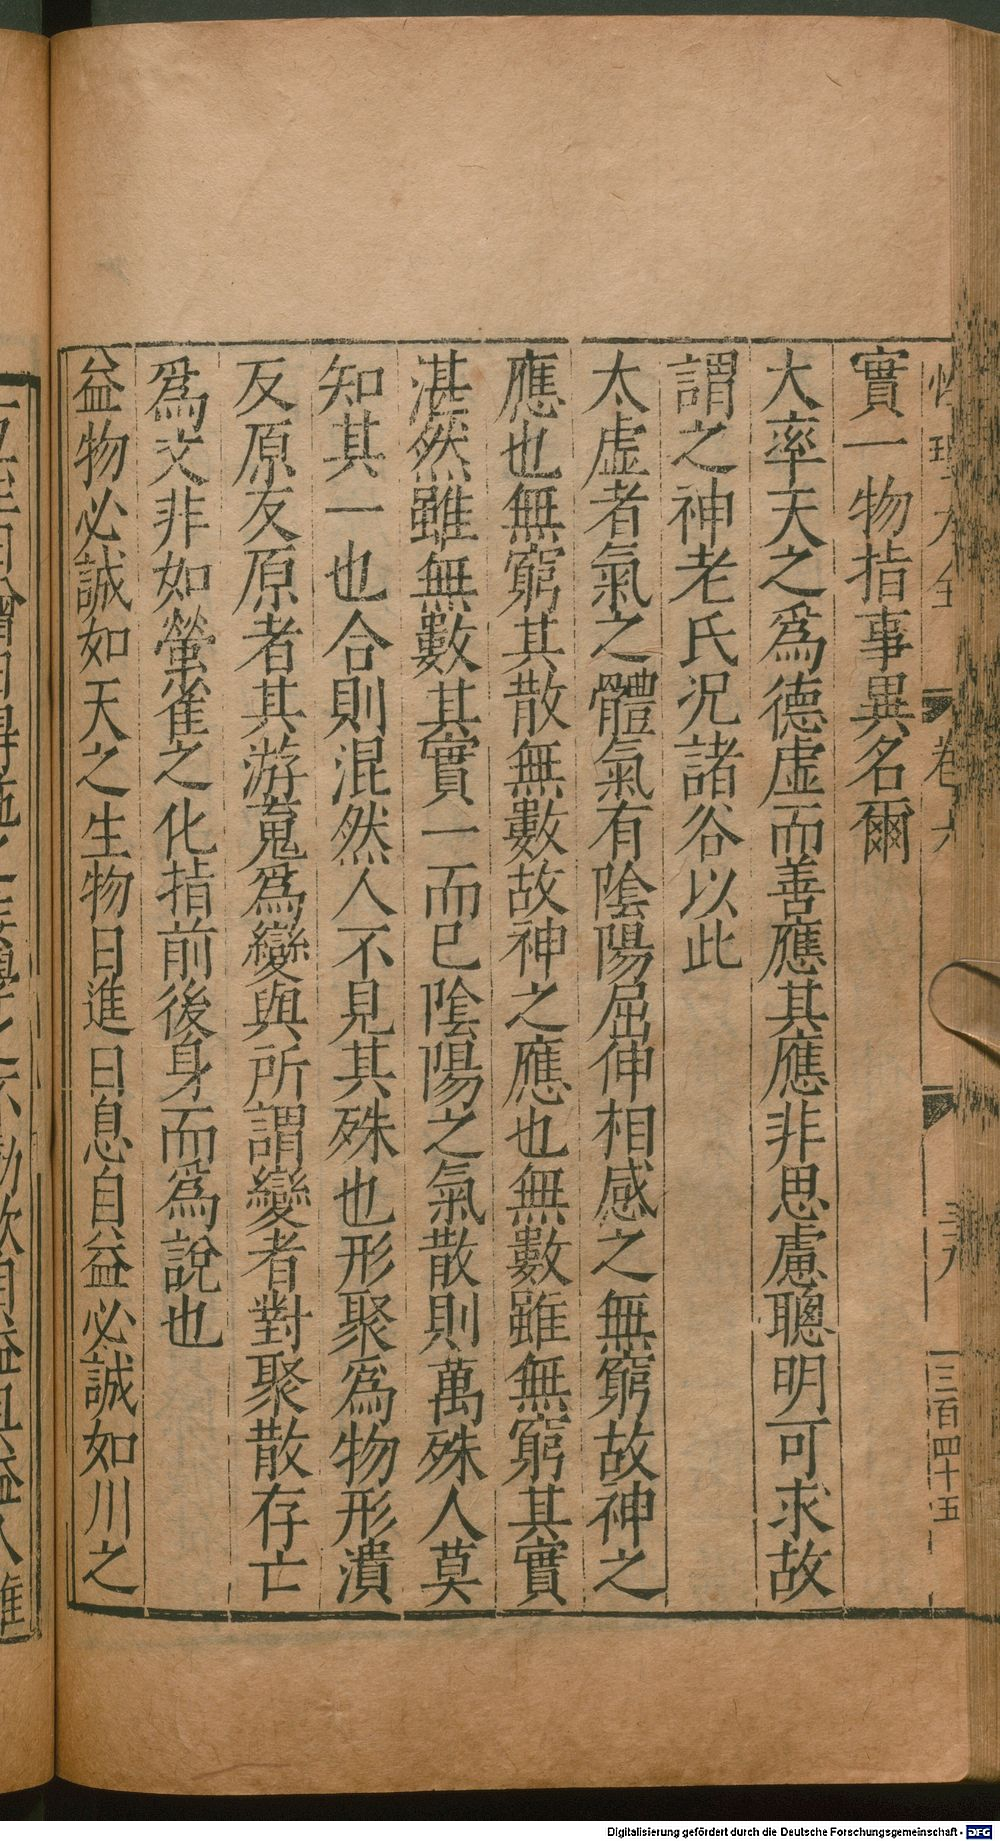 實一物指事異名爾
大率天之爲德虛而善應其應非思慮聰明可求故
謂之神老氏況諸谷以此
太虛者氣之體氣有陰陽屈伸相感之無窮故神之
應也無窮其散無數故神之應也無數雖無窮其實
湛然雖無數其實一而已陰陽之氣散則萬殊人莫
知其一也合則混然人不見其殊也形聚爲物形潰
反原反原者其游䰟爲變與所謂變者對聚散存亡
爲文非如螢雀之化指前後身而爲說也
益物必誠如天之生物日進日息自益必誠如川之
卷六
三百四十五
Digitalisierung gefördert durch die Deutsche Forschungsgemeinschaft - DFG